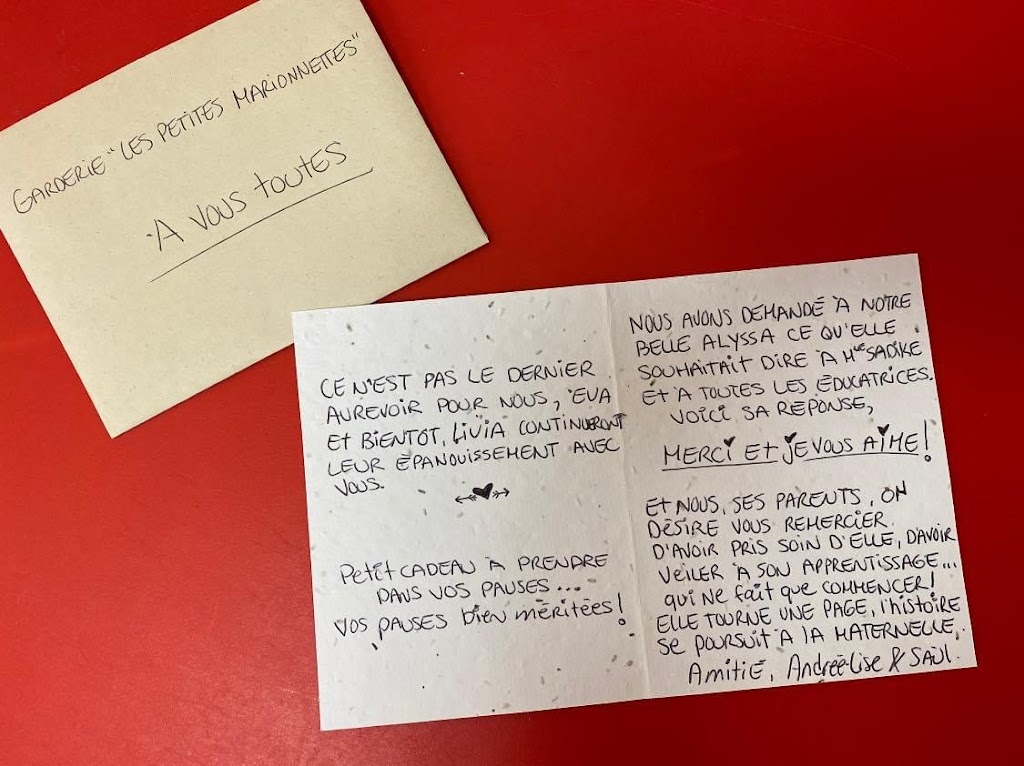 GARDERIE "LES PETITES MARIONNETTES"
À VOUS TOUTES
CE N'EST PAS LE DERNIER
AUREVOIR POUR NOUS, EVA
ET BIENTOT, LIVIA CONTINUERONT
LEUR ÉPANOUISSEMENT AVEC
VOUS.
PETIT CADEAU À PRENDRE
DANS VOS PAUSES...
VOS PAUSES BIEN MÉRITÉES!
NOUS AVONS DEMANDÉ À NOTRE
BELLE ALYSSA CE QU'ELLE
SOUHAITAIT DIRE À Mlle SADIKE
ET À TOUTES LES ÉDUCATRICES.
VOICI SA RÉPONSE,
MERCI ET JE VOUS AIME!
ET NOUS, SES PARENTS, ON
DÉSIRE VOUS REMERCIER
D'AVOIR PRIS SOIN D'ELLE, D'AVOIR
VEILER À SON APPRENTISSAGE...
QUI NE FAIT QUE COMMENCER!
ELLE TOURNE UNE PAGE, L'HISTOIRE
SE POURSUIT À LA MATERNELLE.
AMITIÉ, ANDRÉE-LISE & SAÜL.